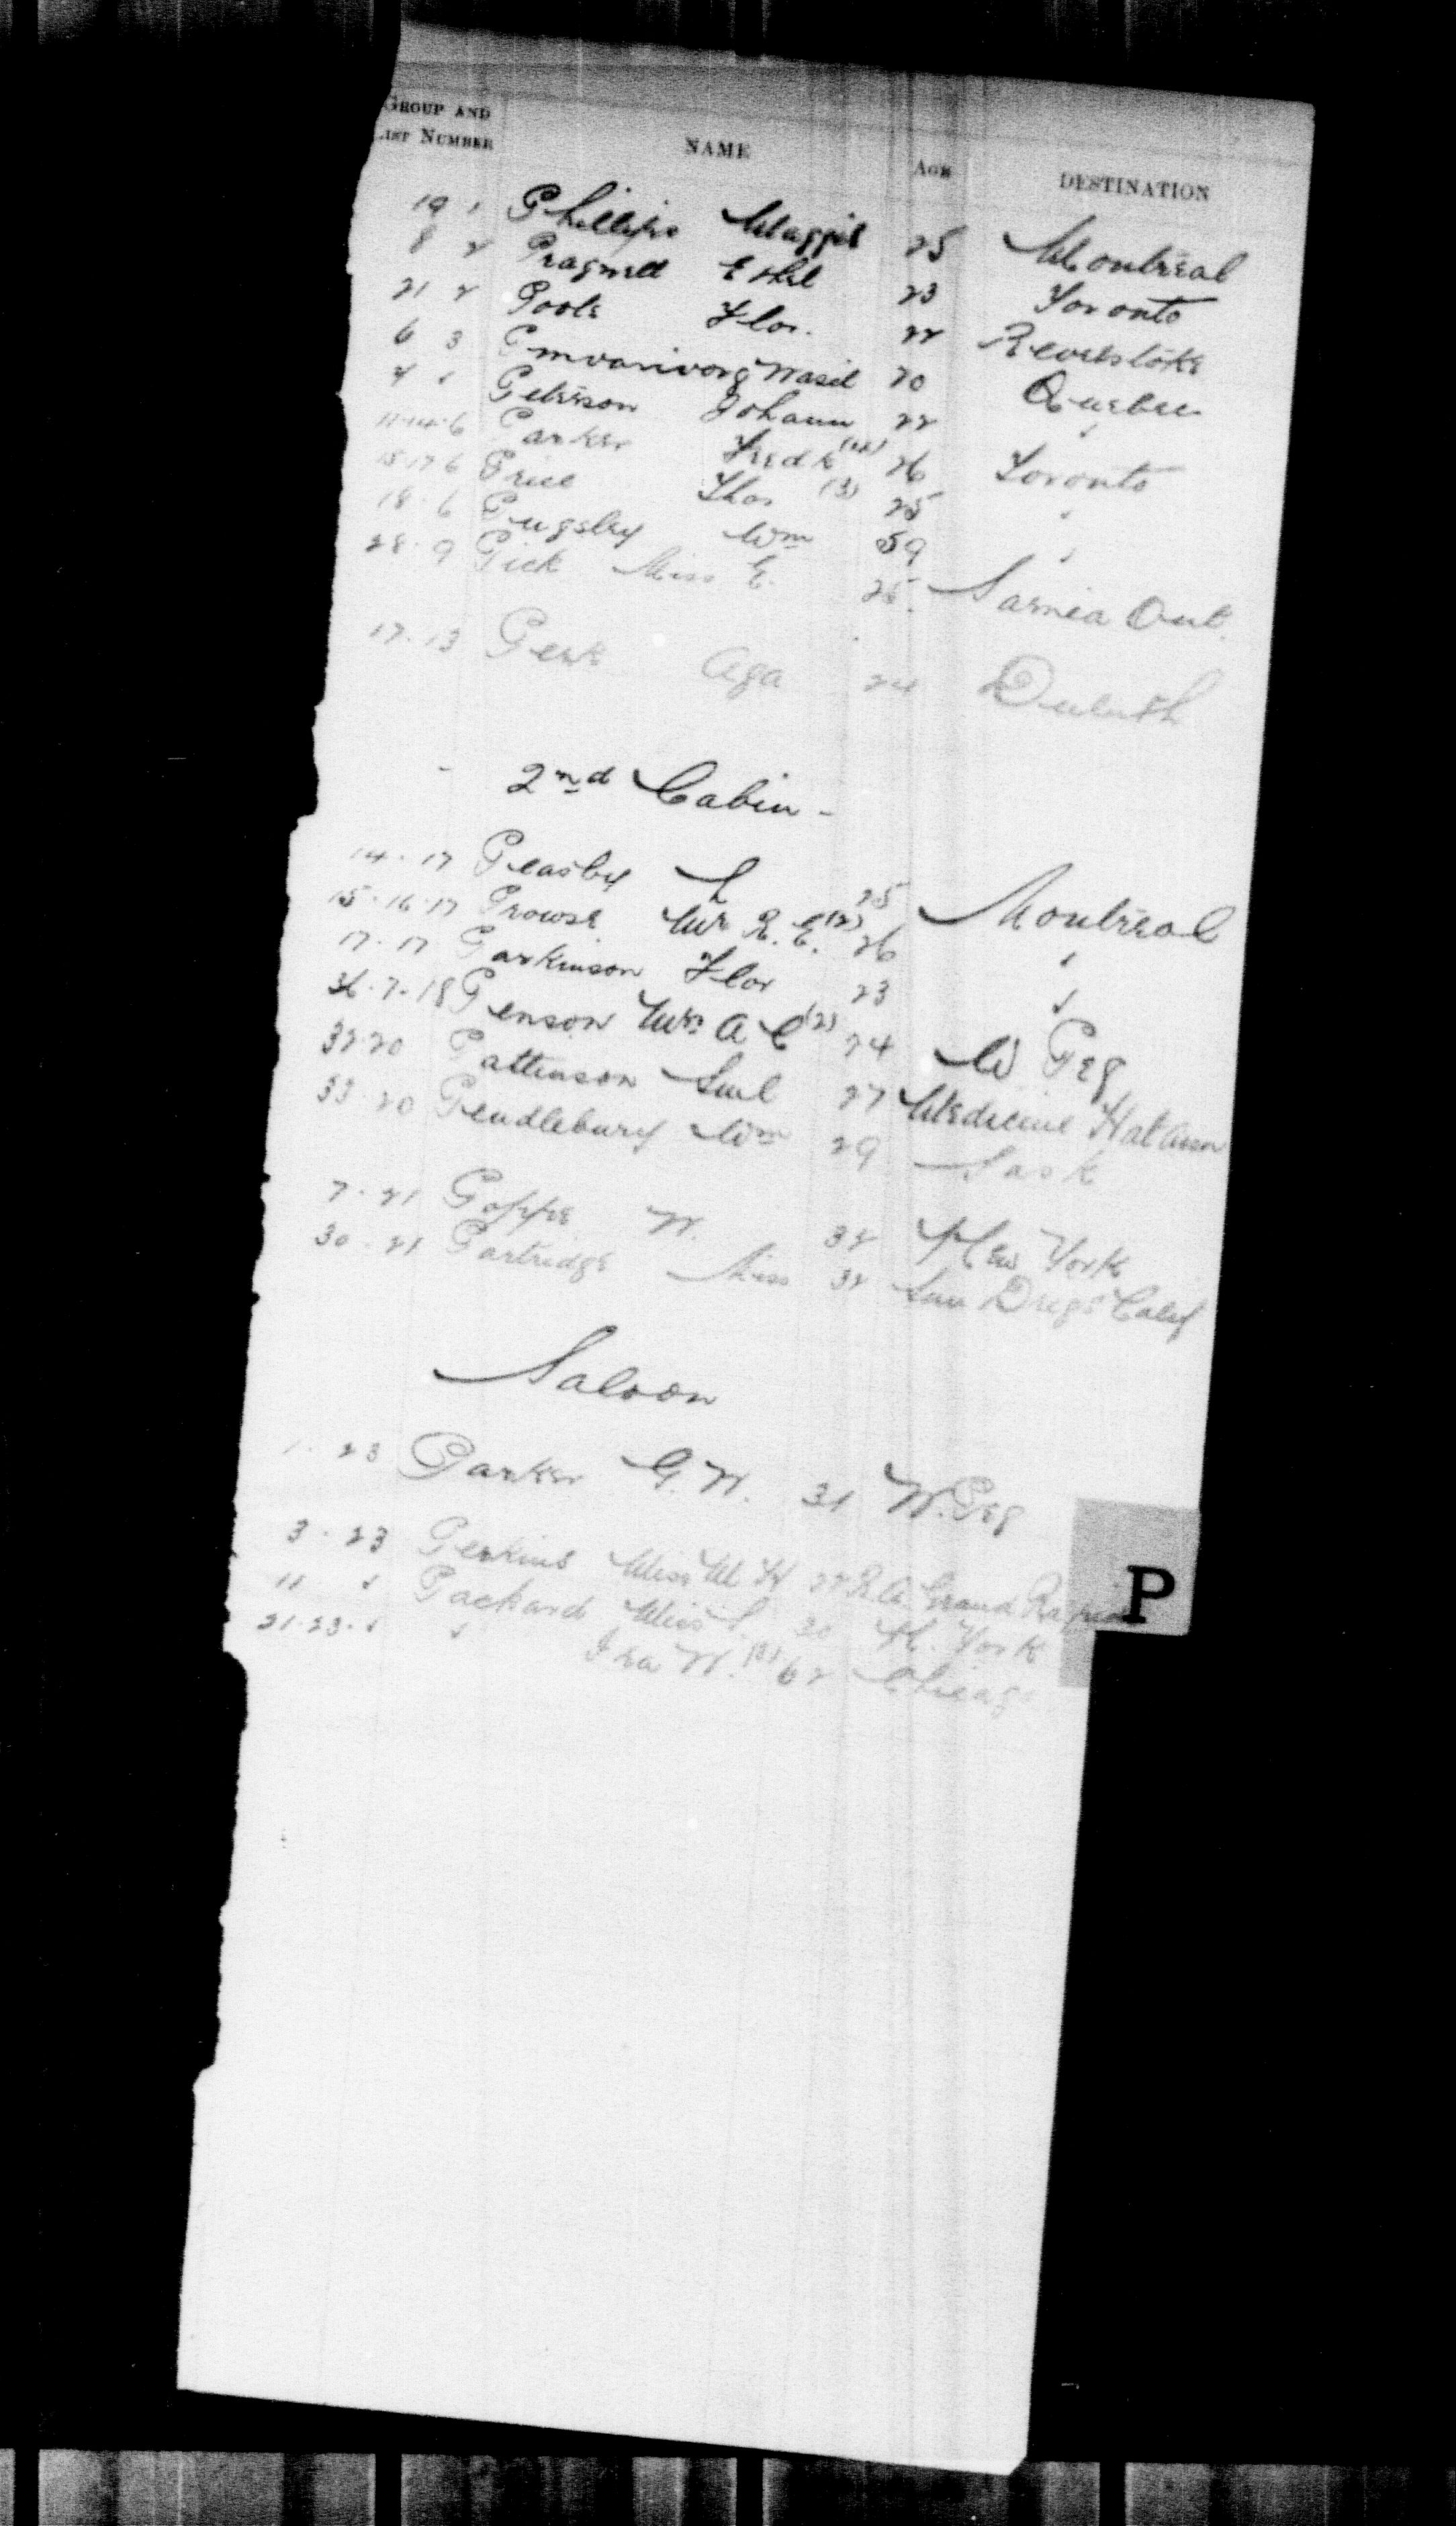 GROUP AND
LIST NUMBER NAME AGE DESTINATION
19 1 Phillips Maggie 25 Montreal
8 2 Pragnell Ethel 23 Toronto
21 2 Poole Flor. 22 Revelstoke
6 3 Wasil 20 Quebec
4 " Peterson Johann 22 "
11-14-6 Parker Fredk (4) 26 Toronto
15-17 6 Price Thos (3) 25 "
18-6 Pugsley Wm 59 "
28-9 Pick Miss E. 25. Sarnia Ont.
17-13 Perk Aga 24 Duluth
2nd Cabin -
14-17 Peasley L 25 Montreal
15-16-17 Prowse Mr R. E. (2) 26 "
17-17 Parkinson Flor 23 "
36-7-18 Penson Mrs A C (2) 24 W Peg
32-20 Pattinson Saml 27 Medicine Hat
33-20 Pendlebury Wm 29 Sask
7-21 Poppe W. 32 New York
30-21 Partridge Miss 32 San Diego Calif
Saloon
1-23 Parker G. W. 31 W. Peg
3-23 Perkins Miss M H 22 R.A. Grand Rapids
11 " Packard Miss L. 30 N. York
21-23-" " Ira W. (3) 62 Chicago
P